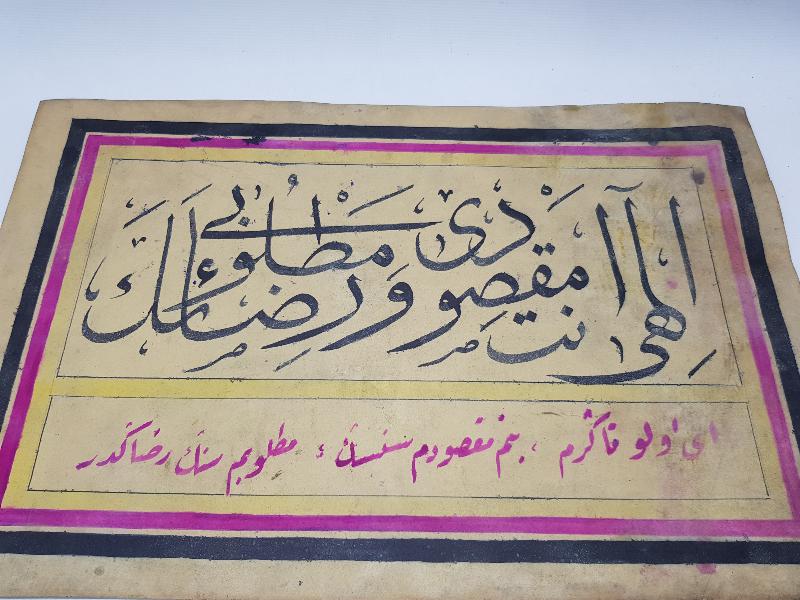 الهى انت مقصودى ورضائك مطلوبى
اى اولو تاڭرم ، بنم مقصودم سنسڭ ، مطلوبم سنڭ رضاڭدر